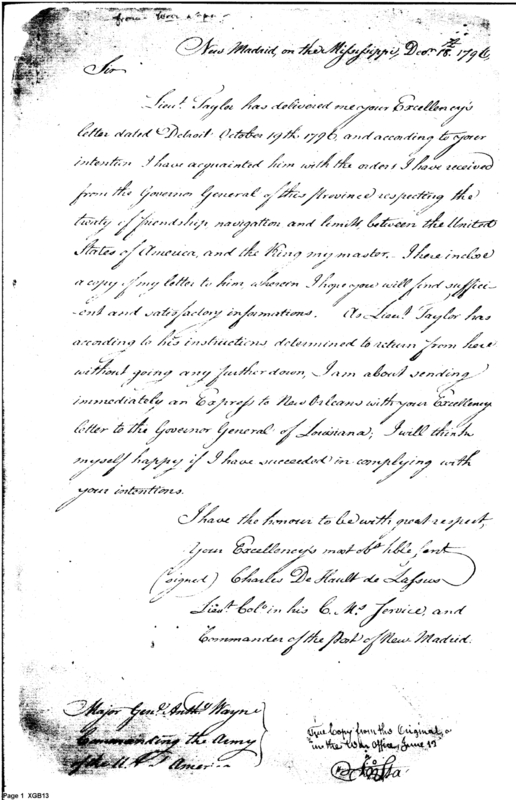 New Madrid, on the Mississippi, Decr. 18th. 1796,
Sir
Lieut. Taylor has delivered me your Excellency's
letter dated Detroit October 19th. 1796, and according to your
intention I have acquainted him with the orders I have received
from the Governor General of this Province respecting the
treaty of friendship navigation and limits, between the United
States of America, and the King my master. I here inclose
a copy of my letter to him, wherein I hope you will find suffici-
-ent and satisfactory informations. As Lieut. Taylor has
according to his instructions determined to return from here
without going any further down, I am about sending
immediately an Express to New Orleans with your Excellency
letter to the Governor General of Louisiana; I will think
myself happy if I have succeeded in complying with
your intentions.
I have the honour to be with great respect,
Your Excellency's most obt. hble. sert
(signed) Charles De Hault de Lassus
Lieut. Colo. in his C. Ms. Service, and
Commander of the Post of New Madrid.
Major Genl. Anthy. Wayne
Commanding the Army
of the U. S. America
True Copy from the Original,
in the War Office, June 12
Page 1 XGB13